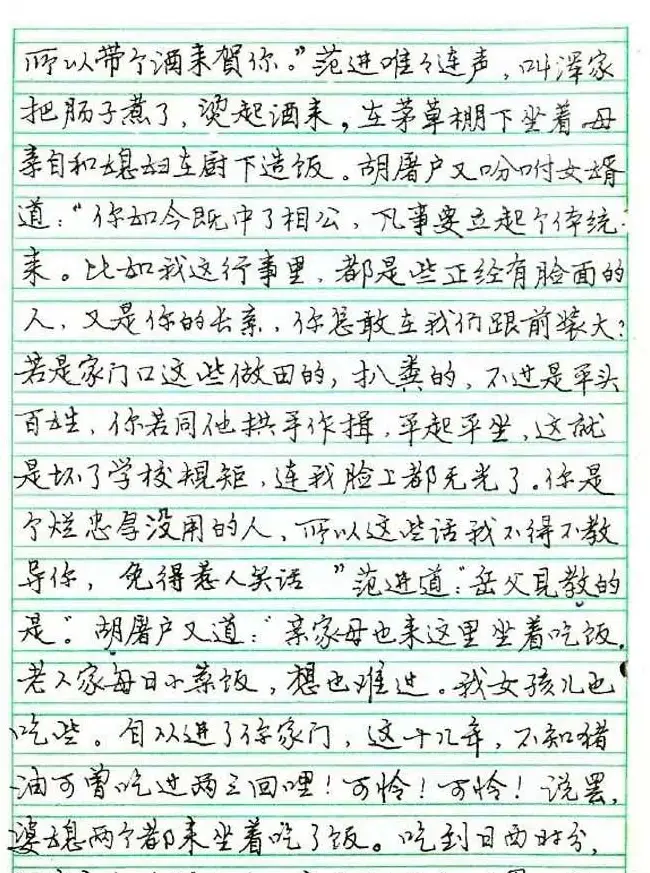 所以带个酒来贺你。”范进唯々连声，叫浑家
把肠子煮了，烫起酒来，在茅草棚下坐着。母
亲自和媳妇在厨下造饭。胡屠户又吩咐女婿
道：“你如今既中了相公，凡事要立起个体统
来。比如我这行事里，都是些正经有脸面的
人，又是你的长亲，你怎敢在我们跟前装大？
若是家门口这些做田的，扒粪的，不过是平头
百姓，你若同他拱手作揖，平起平坐，这就
是坏了学校规矩，连我脸上都无光了。你是
个烂忠厚没用的人，所以这些话我不得不教
导你，免得惹人笑话 ”范进道：“岳父见教的
是”。胡屠户又道：“亲家母也来这里坐着吃饭，
老人家每日小菜饭，想也难过。我女孩儿也
吃些。自从进了你家门，这十几年，不知猪
油可曾吃过两三回哩！可怜！可怜！说罢，
婆媳两个都来坐着吃了饭。吃到日西时分，